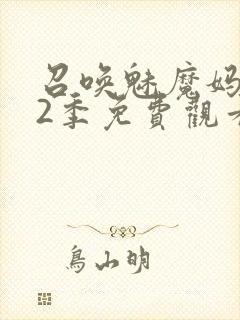 召唤魅魔妈
2季免費觀看
鳥山明